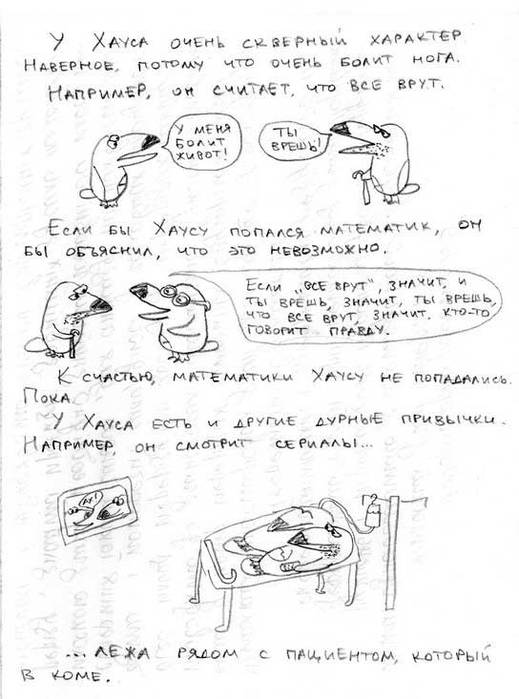 У ХАУСА ОЧЕНЬ СКВЕРНЫЙ ХАРАКТЕР
НАВЕРНОЕ, ПОТОМУ ЧТО ОЧЕНЬ БОЛИТ НОГА.
НАПРИМЕР, ОН СЧИТАЕТ, ЧТО ВСЕ ВРУТ.
У МЕНЯ
БОЛИТ
ЖИВОТ!
ТЫ
ВРЕШЬ!
ЕСЛИ БЫ ХАУСУ ПОПАЛСЯ МАТЕМАТИК, ОН
БЫ ОБЪЯСНИЛ, ЧТО ЭТО НЕВОЗМОЖНО.
ЕСЛИ „ВСЕ ВРУТ", ЗНАЧИТ, И
ТЫ ВРЕШЬ, ЗНАЧИТ, ТЫ ВРЕШЬ,
ЧТО ВСЕ ВРУТ, ЗНАЧИТ, КТО-ТО
ГОВОРИТ ПРАВДУ.
К СЧАСТЬЮ, МАТЕМАТИКИ ХАУСУ НЕ ПОПАДАЛИСЬ.
ПОКА.
У ХАУСА ЕСТЬ И ДРУГИЕ ДУРНЫЕ ПРИВЫЧКИ.
НАПРИМЕР, ОН СМОТРИТ СЕРИАЛЫ...
... ЛЕЖА РЯДОМ С ПАЦИЕНТОМ, КОТОРЫЙ
В КОМЕ.